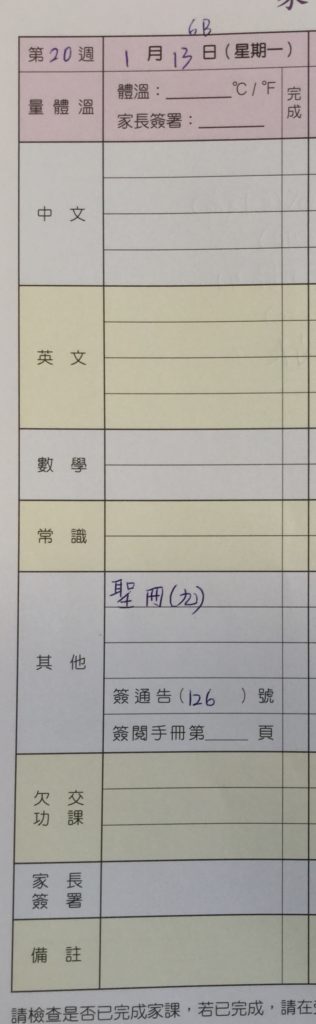 6B
第20週 1月13日(星期一)
量體溫 體溫：______°C/°F 完成
家長簽署：______
中文
英文
數學
常識
聖冊(九)
其他
簽通告(126 )號
簽閱手冊第____頁
欠交功課
家長簽署
備註
請檢查是否已完成家課，若已完成，請在